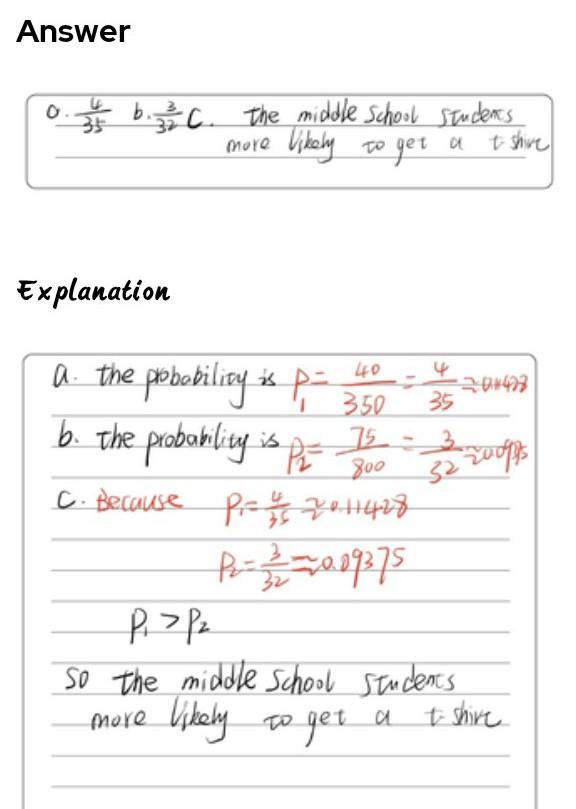 Answer
a. 4/35 b. 3/32 C. The middle School Students
more likely to get a t-shirt
Explanation
a. the probability is P₁ = 40/350 = 4/35 ≈
b. the probability is P₂ = 75/800 = 3/32 ≈
C. Because P₁ = 4/35 ≈ 0.11428
P₂ = 3/32 ≈ 0.09375
P₁ > P₂
So the middle School Students
more likely to get a t-shirt